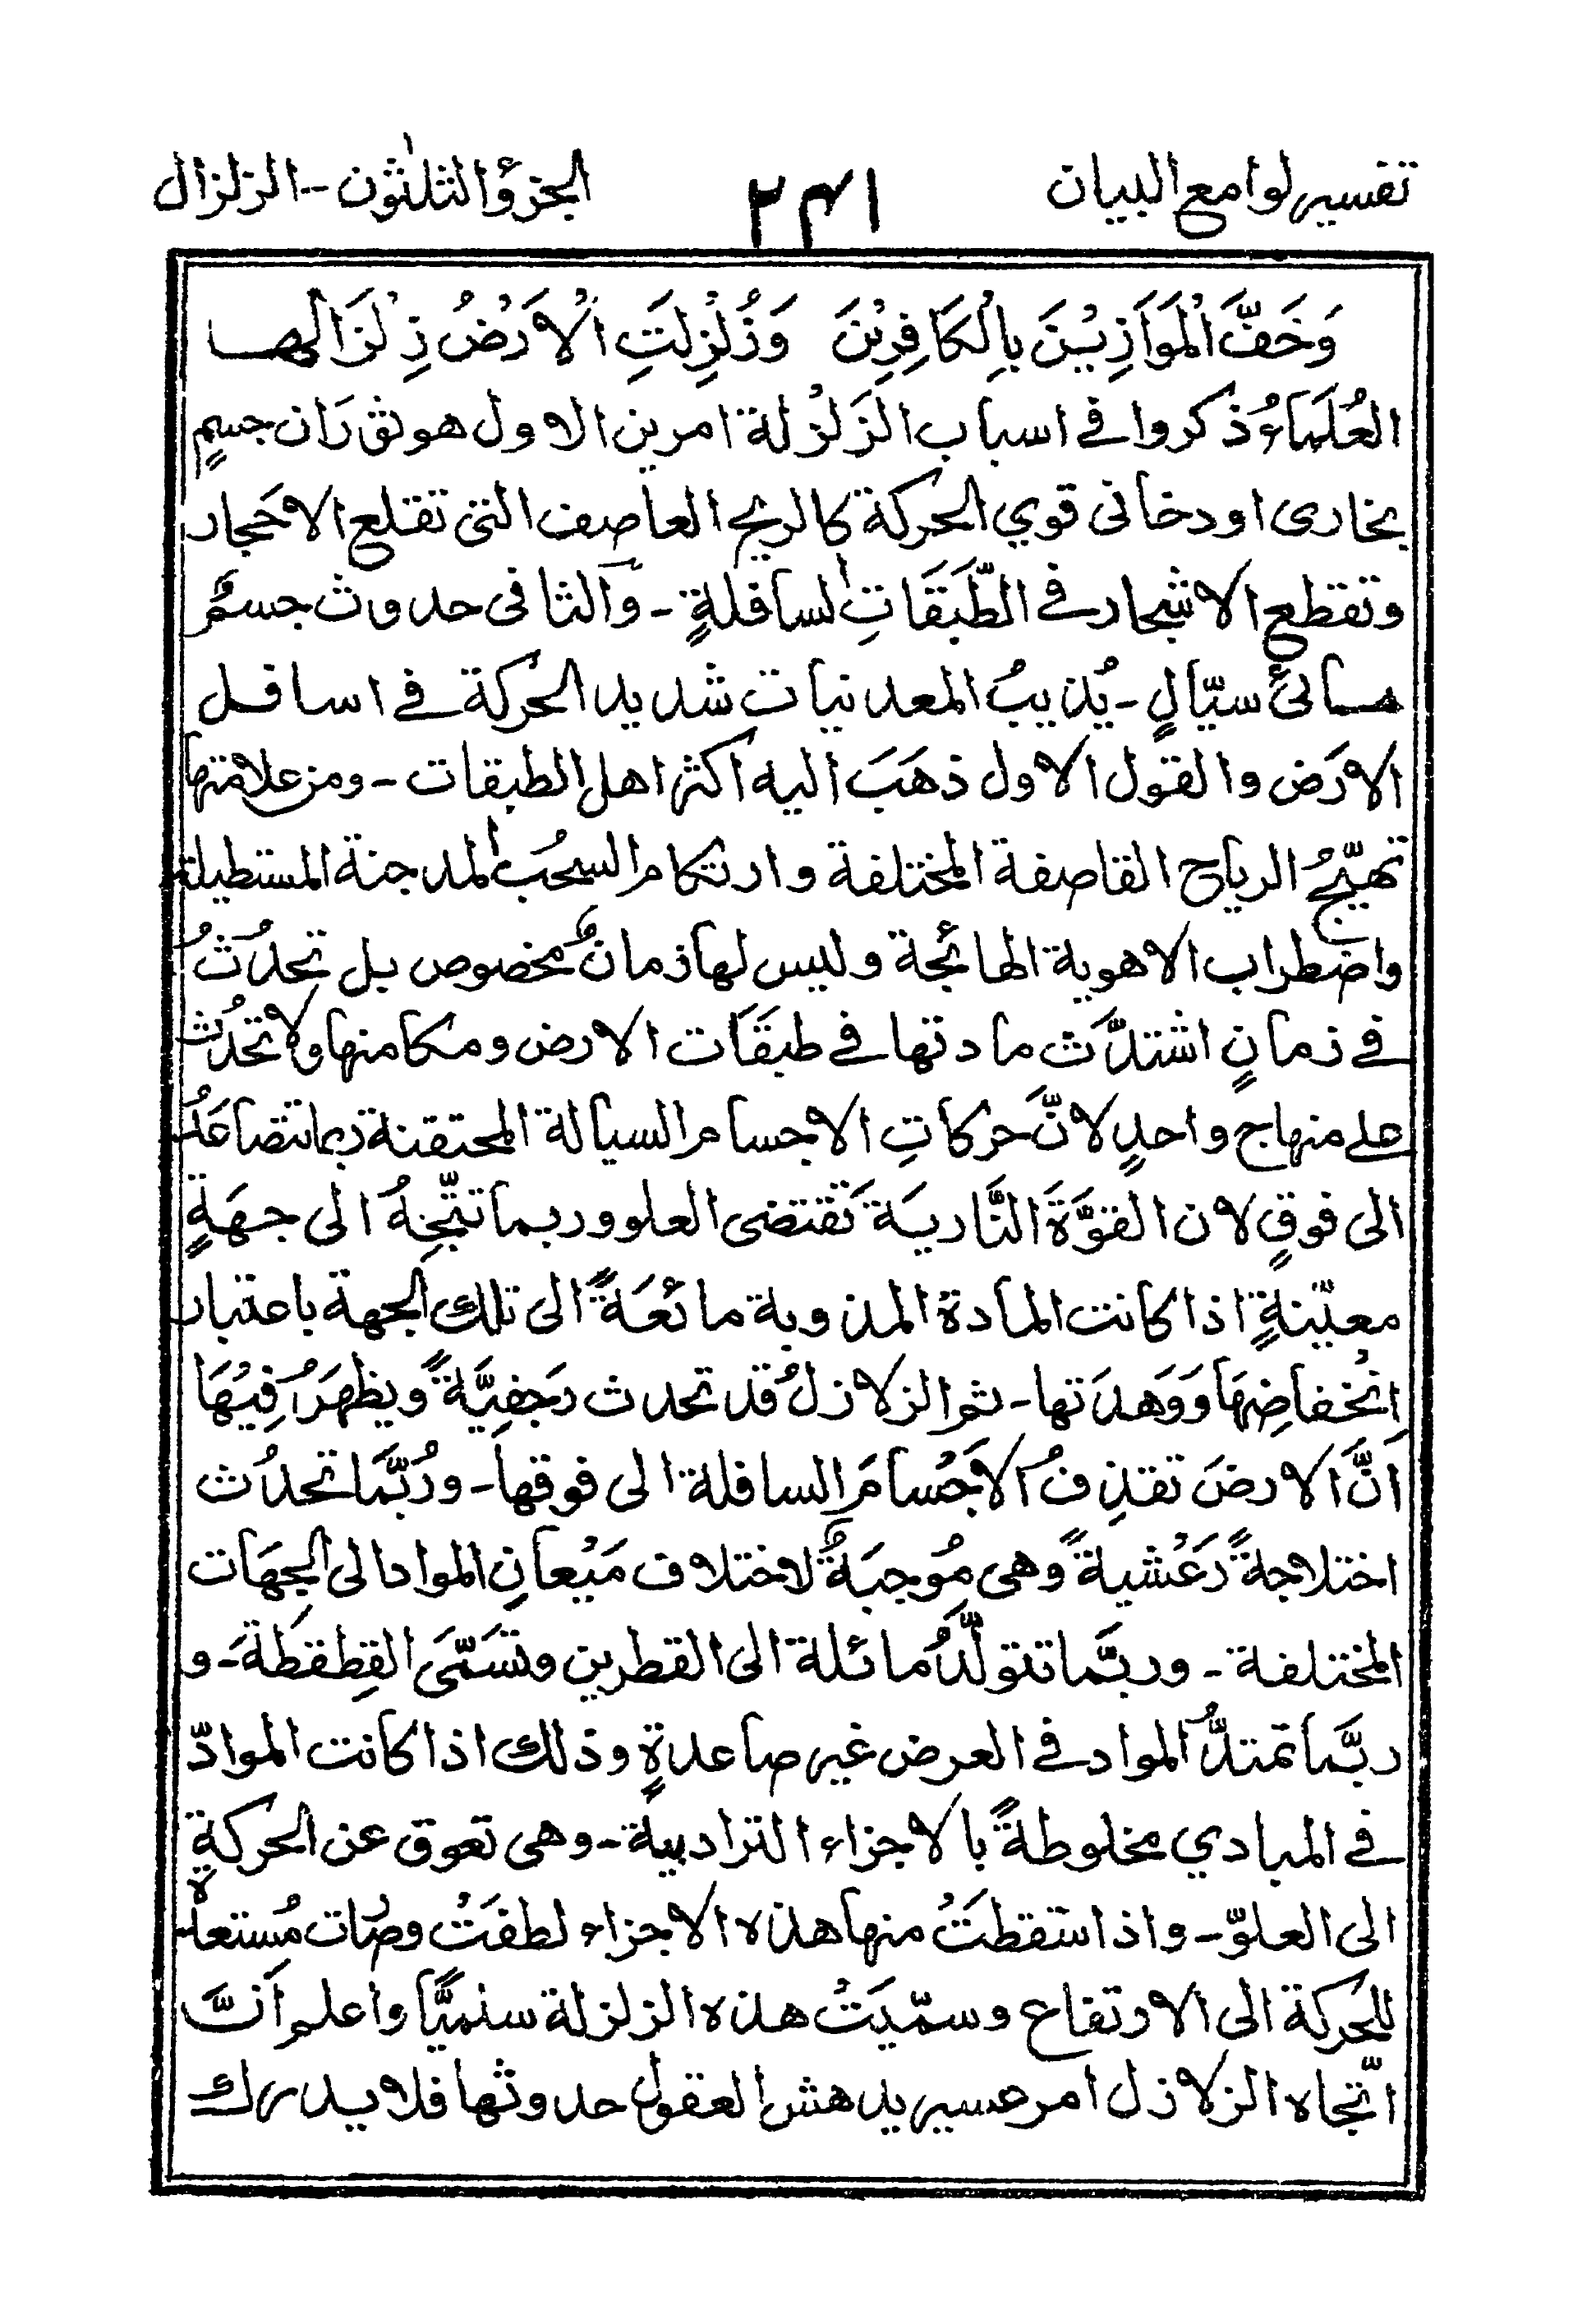 تفسير لوامع البيان ٢٤١ الجزؤ الثلثون -- الزلزال
وَخَفَّ الْمَوَازِيْنَ بِالْكَافِرِيْنَ وَزُلْزِلَتِ الْاَرْضُ زِلْزَالَهـا
العُلَمَاءُ ذكروا فے اسباب الزَلْزلة امرين الاول هو ثورَان جسمٍ
بخارى او دخانى قوي الحركة كالريح العاصف التى تقلع الاحَجار
وتقطع الاشجار فے الطَّبَقَاتِ السافلةٍ - وَالثانى حدوث جسمٌ
مـائىٔ سيّالٍ - يُذيبُ المعدنيات شديد الحركة فے اسافـل
الارَض والقول الاول ذهَبَ اليه اكثر اهل الطبقات - ومن علامتها
تهيّجُ الرياح القاصفة المختلفة وارتكام السحُب المدجنة المستطيلة
واضطراب الاهوية الهائجة وليس لها زمانٌ مخصوص بل تحدُثُ
فے زمانٍ اشتدَّت مادتها فے طبقَات الارض ومكامنها ولا تحدُث
علے منهاج واحدٍ لانَّ حركاتِ الاجسام السيالة المحتقنة ربما تتصاعَدُ
الى فوقٍ لان القوَّةَ النَّاريَة تَقتضى العلو وربما تتّجِهُ الى جهَةٍ
معيّنةٍ اذا كانت المادة المذوبة مائعَةً الى تلك الجهة باعتبار
اِنْخفاضِهَا وَوَهدَتها - ثم الزلازلُ قد تحدث رَجفِيَّةً ويظهَرُ فِيْهَا
اَنَّ الارضَ تقذِفُ الاَجْسامَ السافلة الى فوقها - ورُبَّمَا تحدُث
اختلاجةً رَعْشيةً وهى مُوجبَةٌ لاختلاف مَيْعانِ المواد الى الجِهَات
المختلفة - وربَّما تتولَّدُ مائلة الى القطرين وتسَمّىَ القِطقطَةَ - و
ربَّما تمتدُّ المواد فے العرض غير صاعدةٍ وذلك اذا كانت الموادّ
فے المبادي مخلوطةً بالاجزاء الترابية - وهى تعوق عن الحركةِ
الى العلوّ - واذا سَقطتْ منها هذه الاجزاء لطفَتْ وصَارت مُستعدة
للحَركة الى الارتفاع وسمّيَتْ هذه الزلزلة سنميًّا واعلم اَنَّ
اتّجاه الزلازل امر عسير يدهش العقول حدوثها فلا يـدرك